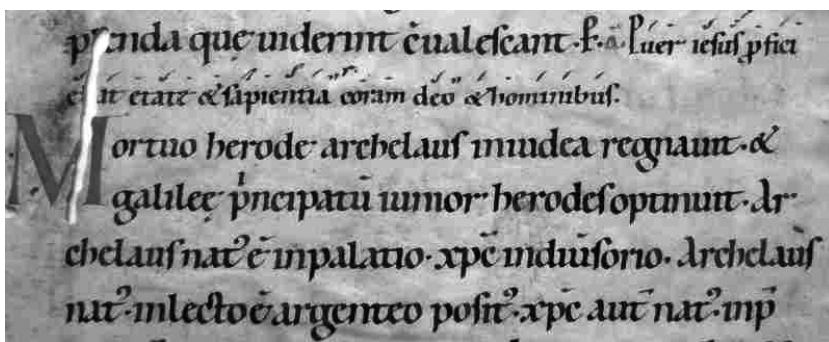 prenda quę uiderint c̄ualescant. R̵. a. Puer iesus ꝓfici
ebat etate & sapientia coram deo & hominibus.
Mortuo herode archelaus iniudea regnauit. &
galileę pͥncipatū iunior herodes optinuit. Ar
chelaus natꝰ ē inpalatio. xpc̄ indiūsorio. Archelaus
natꝰ inlecto ē argenteo positꝰ. xpc̄ aut̄ natꝰ inp̄